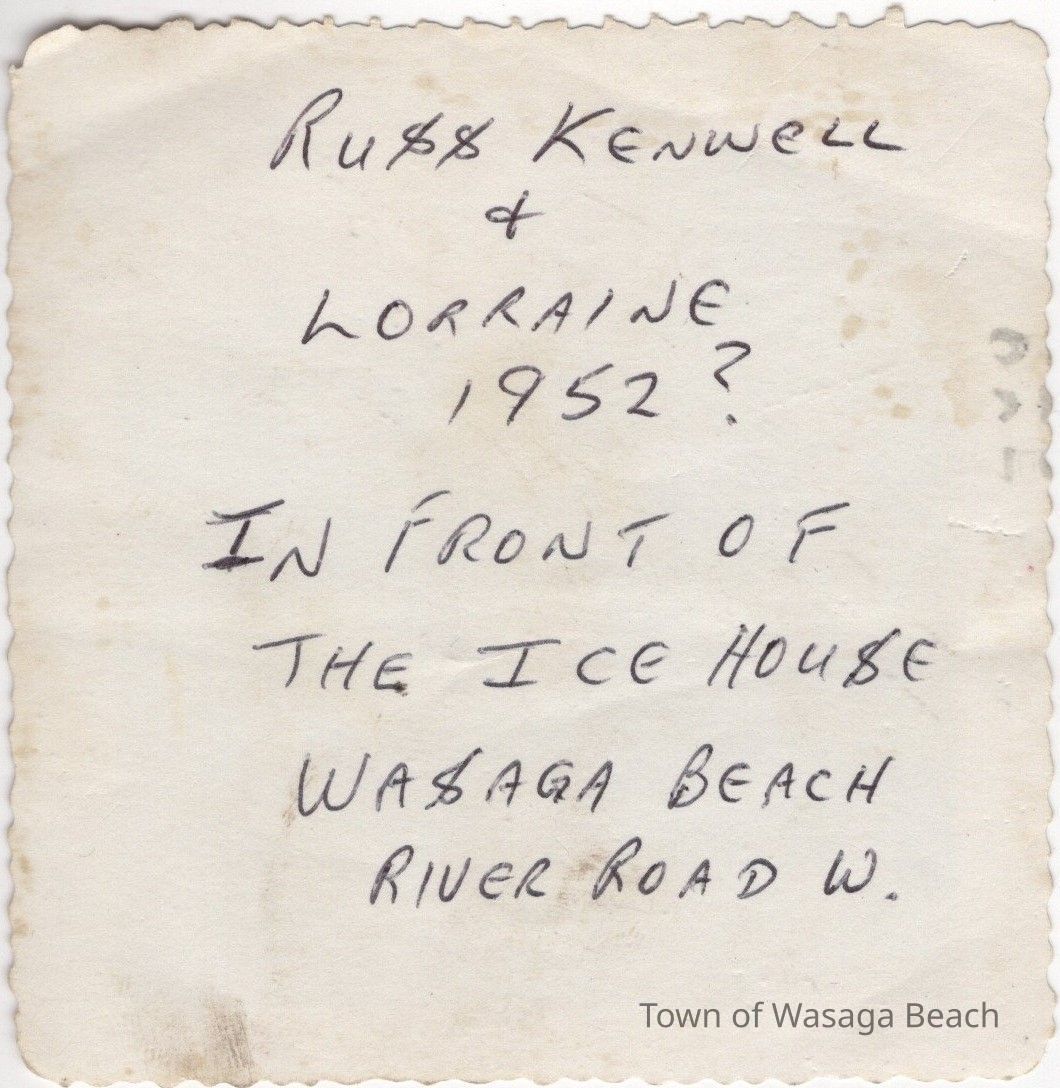 Russ Kenwell
&
LORRAINE
1952 ?
IN FRONT OF
THE ICE HOUSE
WASAGA BEACH
RIVER ROAD W.
Town of Wasaga Beach